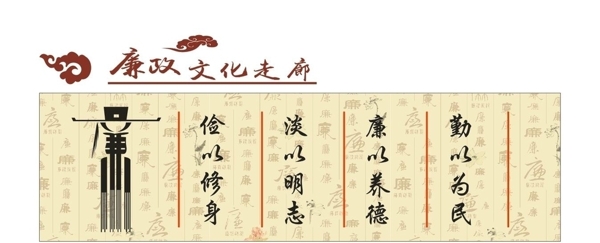 廉政文化走廊
勤以为民
廉以养德
淡以明志
俭以修身
廉